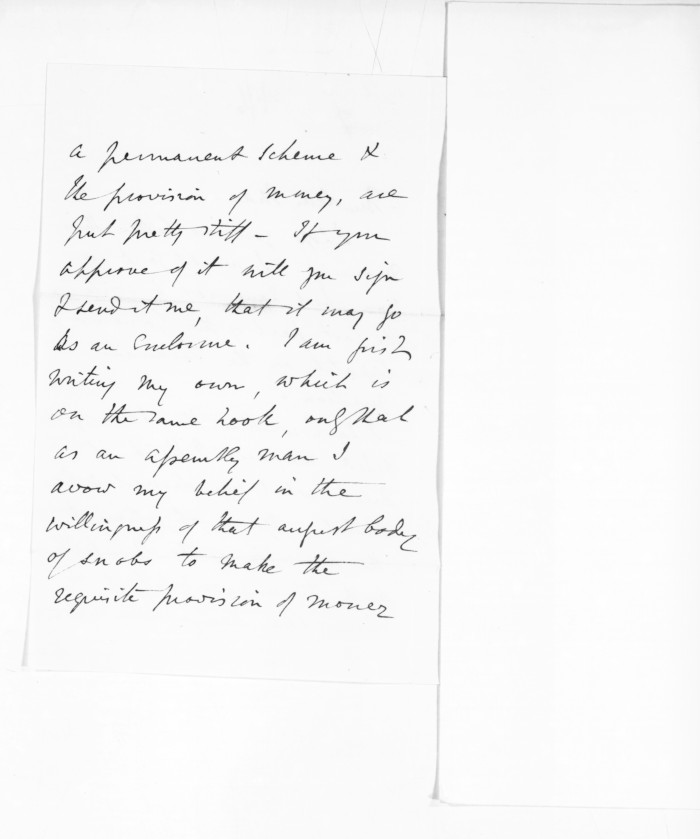 a permanent scheme &
the provision of money, are
put pretty stiff - If you
approve of it will you sign
& send it me, that it may go
as an Enclosure. I am first
writing my own, which is
on the same hook, only that
as an assembly man I
avow my belief in the
willingness of that august body
of snobs to make the
requisite provision of money